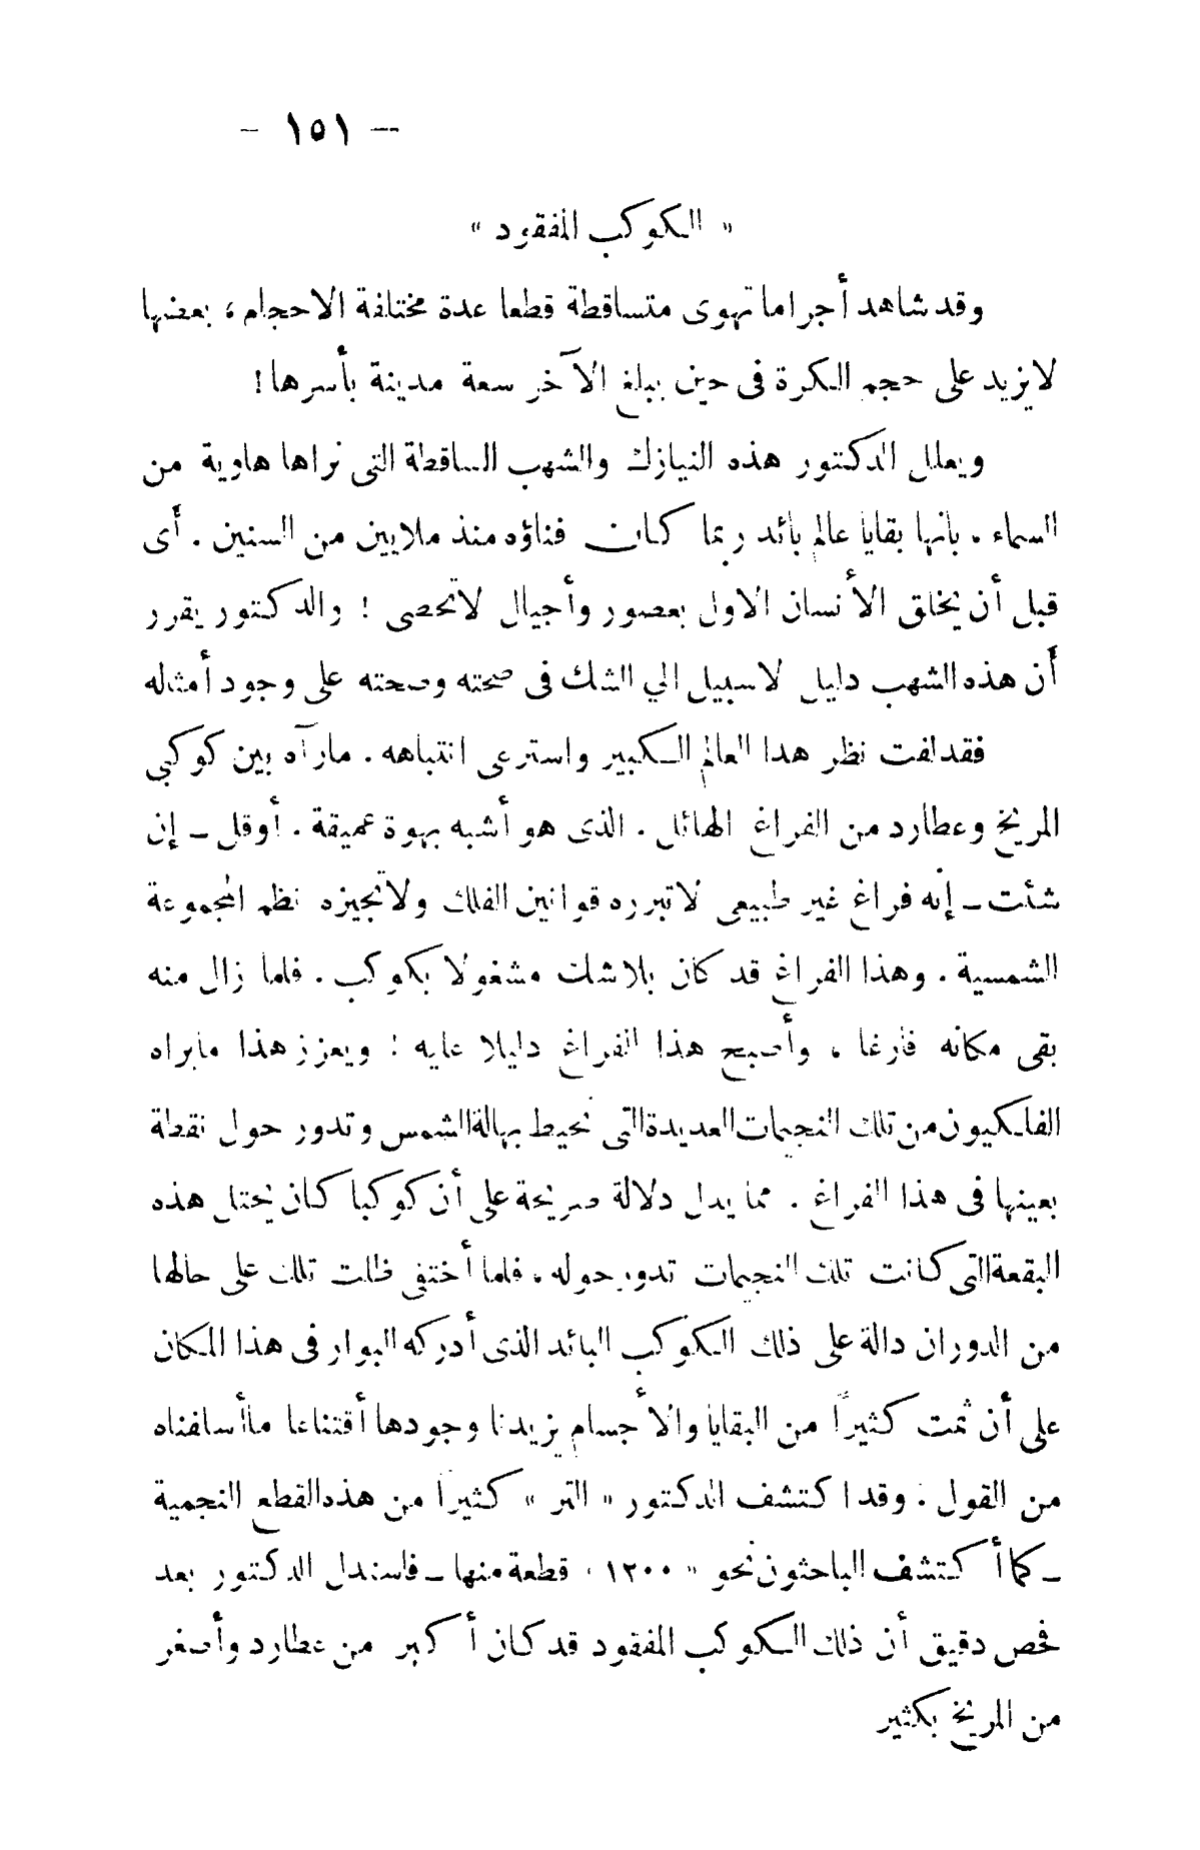 — ١٥١ —
« الكوكب المفقود »
وقد شاهد أجراما تهوى متساقطة قطعا عدة مختلفة الاحجام ، بعضها
لا يزيد على حجم الكرة فى حين يبلغ الآخر سعة مدينة بأسرها !
ويعلل الدكتور هذه النيازك والشهب الساقطة التى نراها هاوية من
السماء ، بأنها بقايا عالم بائد ربما كان فناؤه منذ ملايين من السنين . أى
قبل أن يخلق الأنسان الاول بعصور وأجيال لا تحصى ! والدكتور يقرر
أن هذه الشهب دليل لا سبيل الي الشك فى صحته وصحته على وجود أمثاله
فقد لفت نظر هدا العالم الكبير واسترعى انتباهه . مارآه بين كوكبي
المريخ وعطارد من الفراغ الهائل . الذى هو أشبه بهوة عميقة . أوقل ـ إن
شئت ـ إنه فراغ غير طبيعى لا تبرره قوانين الفلك ولا تجيزه نظم المجموعة
الشمسية . وهذا الفراغ قد كان بلا شك مشغولا بكوكب . فلما زال منه
بقى مكانه فارغا ، وأصبح هذا الفراغ دليلا عليه ! ويعزز هذا مايراه
الفلكيون من تلك النجيمات العديدة التى تحيط بهالة الشمس وتدور حول نقطة
بعينها فى هذا الفراغ . مما يدل دلالة صريحة على أن كوكبا كان يحتل هذه
البقعة التى كانت تلك النجيمات تدور حوله ، فلما أختفى ظلت تلك على حالها
من الدوران دالة على ذلك الكوكب البائد الذى أدركه البوار فى هذا المكان
على أن ثمت كثيرًا من البقايا والأجسام يزيدنا وجودها أقتناعا ما أسلفناه
من القول . وقد اكتشف الدكتور « التر » كثيرًا من هذه القطع النجمية
ـ كما أكتشف الباحثون نحو « ١٢٠٠ » قطعة منها ـ فاستدل الدكتور بعد
فحص دقيق أن ذلك الكوكب المفقود قد كان أكبر من عطارد وأصغر
من المريخ بكثير